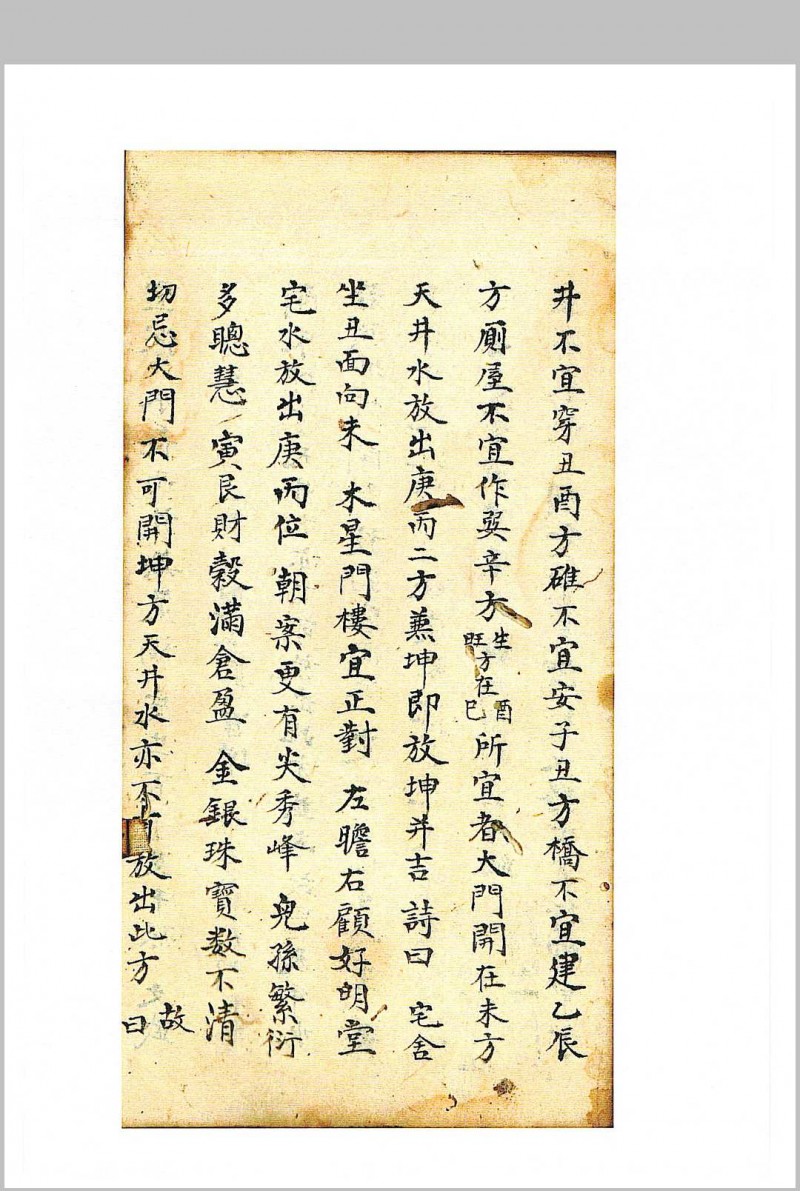 井不宜穿丑酉方碓不宜安子丑方橋不宜建乙辰
方厠屋不宜作巽辛方生酉旺方在巳所宜者大門開在未方
天井水放出庚丙二方兼坤即放坤并吉詩曰 宅舍
坐丑面向未 木星門樓宜正對 左瞻右顧好明堂
宅水放出庚丙位 朝案更有尖秀峰 兒孫繁衍
多聰慧 寅艮財穀滿倉盈 金銀珠寶数不清
切忌大門不可開坤方天井水亦不可放出此方 故曰